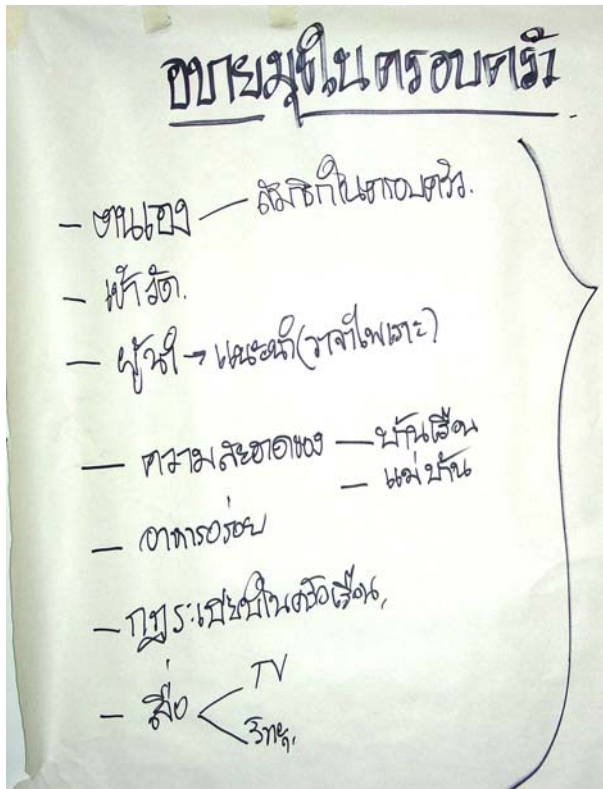 อบายมุขในครอบครัว
- ตนเอง — สมาชิกในครอบครัว.
- เข้าวัด.
- ผู้นำ → แนะนำ(วาจาไพเราะ)
- ความสะอาดของ — บ้านเรือน
— แม่บ้าน
- อาหารอร่อย
- กฎระเบียบในครัวเรือน,
- สื่อ < TV
วิทยุ.